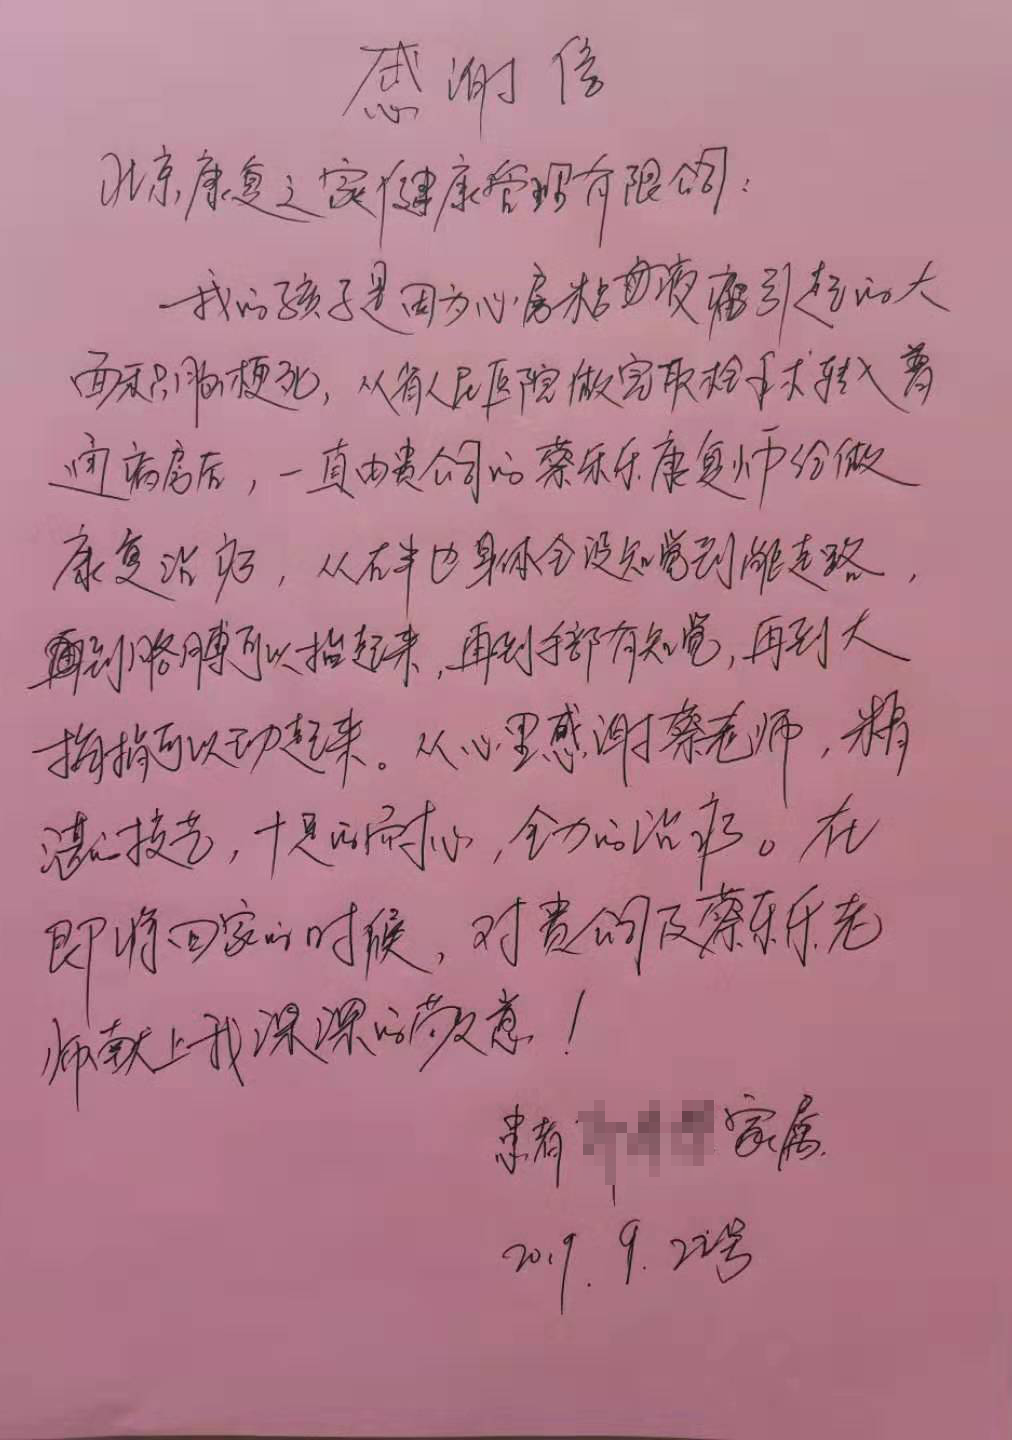 感谢信
北京康复之家健康管理有限公司：
我的孩子是因为心房粘液瘤引起的大
面积脑梗死，从省人民医院做完取栓手术转入普
通病房后，一直由贵公司的蔡乐乐康复师给做
康复治疗，从右半边身体全没知觉到能走路，
再到胳膊可以抬起来，再到手部有知觉，再到大
拇指可以动起来。从心里感谢蔡老师，精
湛的技艺，十足的耐心，全力的治疗。在
即将回家的时候，对贵公司及蔡乐乐老
师献上我深深的敬意！
患者 家属
2019.9.22号